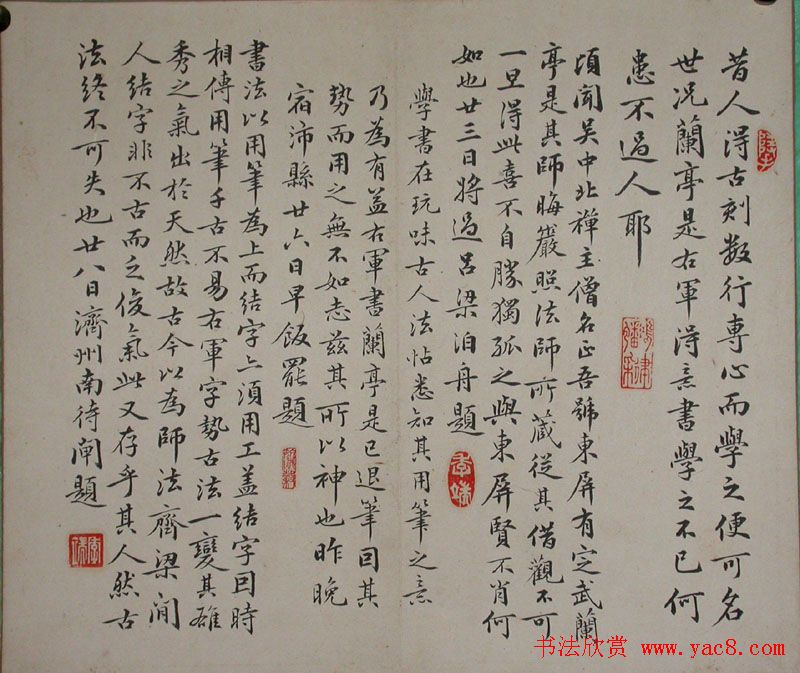 昔人得古刻数行専心而學之便可名
世况蘭亭是右軍得意書學之不已何
患不過人耶
頃聞吴中北禅主僧名正吾號東屏有定武蘭
亭是其師晦巖照法師所藏従其借觀不可
一旦得此喜不自勝獨孤之與東屏賢不肖何
如也廿三日将過吕梁泊舟題
學書在玩味古人法帖悉知其用筆之意
乃為有益右軍書蘭亭是已退筆因其
勢而用之無不如志兹其所以神也昨晚
宿沛縣廿六日早飯罷題
書法以用筆為上而結字亦須用工盖結字因時
相傳用筆千古不易右軍字勢古法一變其雄
秀之氣出於天然故古今以為師法齊梁间
人結字非不古而乏俊氣此又存乎其人然古
法終不可失也廿八日濟州南待闸題
书法欣赏 www.yac8.com